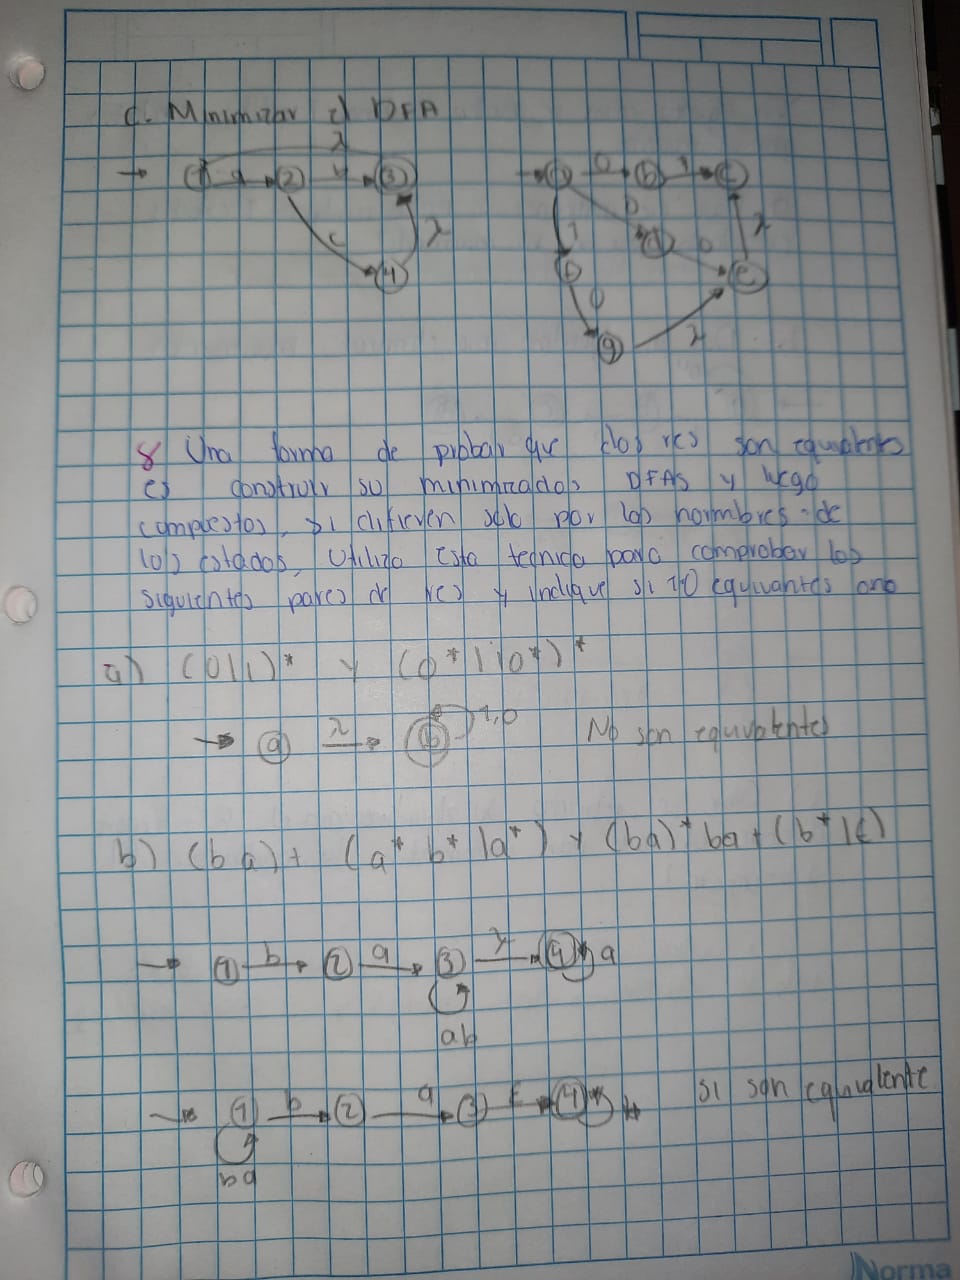 c. Minimizar el DFA
λ
→ 1 a 2 y 3 → 0 b 1 c
c λ 1 b d 0 λ
4 b e
0
g λ
8 Una forma de probar que dos res son equivalents
es construir su minimizados DFAS y luego
compuestos, si difieren solo por los normbres de
los estados, Utiliza esta tecnica para comprobar los
siguientes pares de res y indique si 10 equivantes ono
a) (0|1)* y (0*|10*)*
→ a λ b 1,0 No son equivalentes
b) (ba)+ (a* b* |a*) y (ba)* ba+ (b*|ε)
→ 1 b 2 a 3 λ 4 a
ab
→ 1 b 2 a 3 ε 4 b si son equivalente
ba
Norma